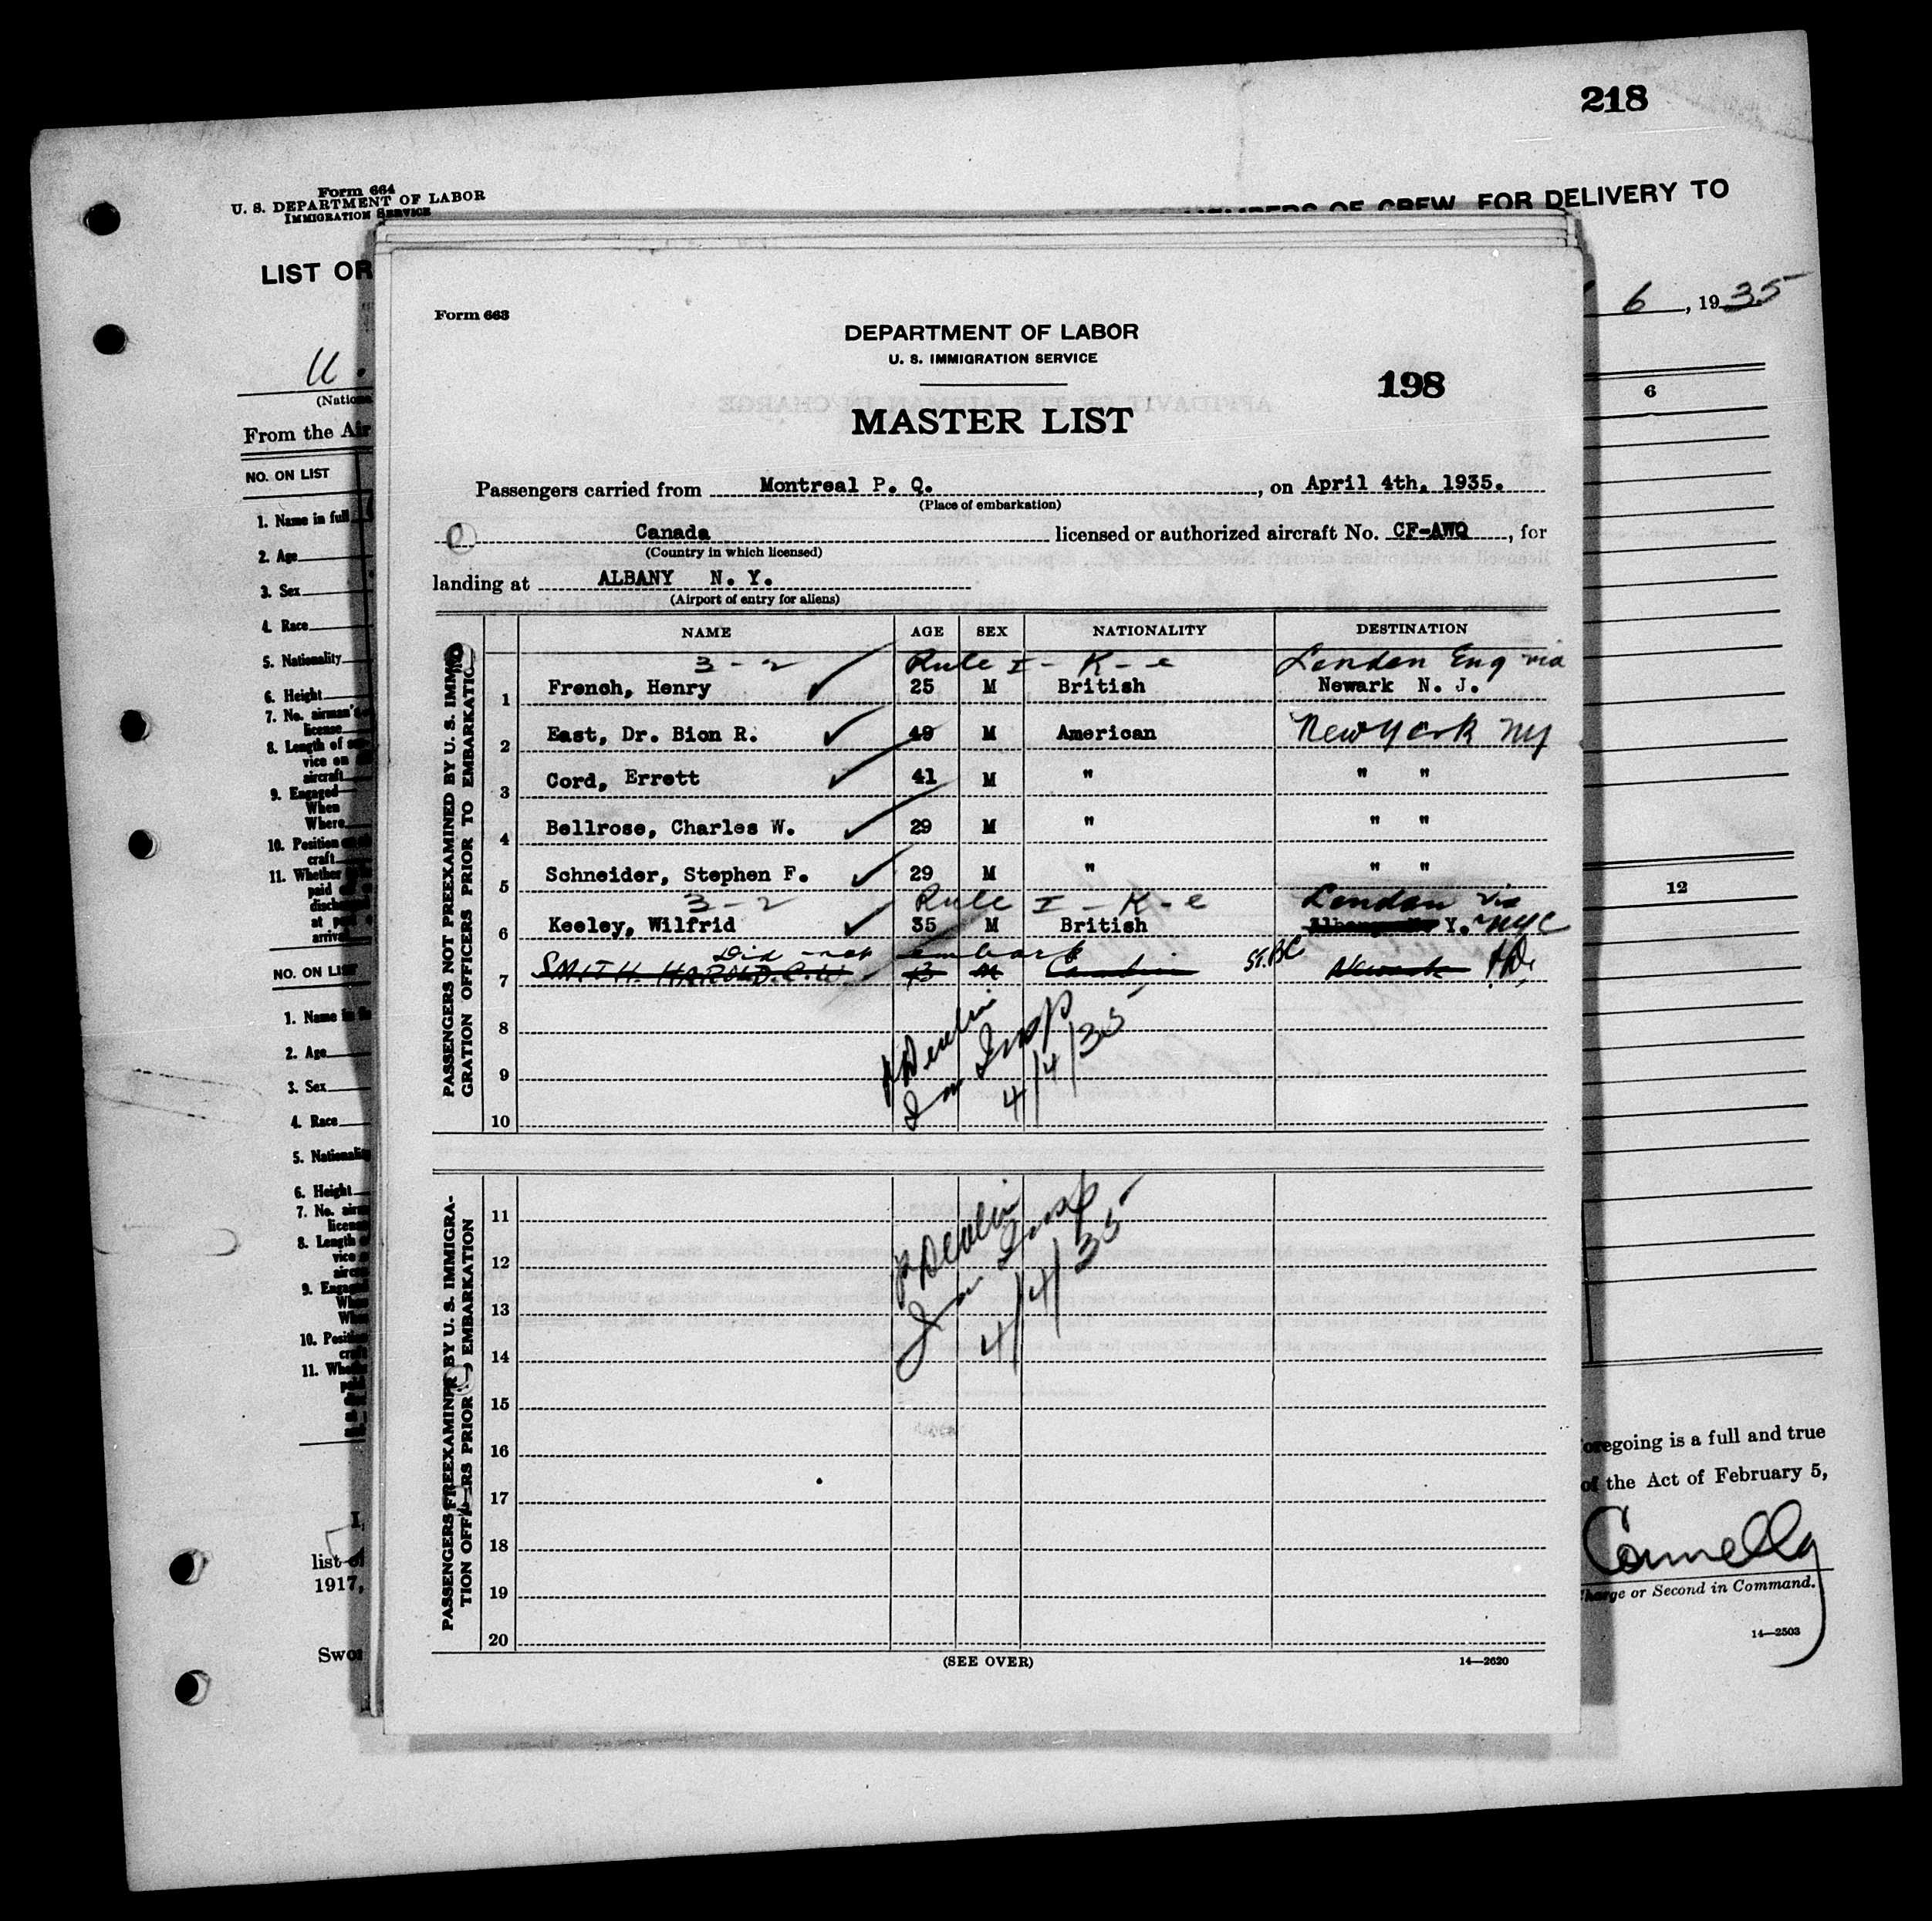 218
Form 664
U. S. DEPARTMENT OF LABOR
IMMIGRATION SERVICE
MEMBERS OF CREW, FOR DELIVERY TO
LIST OR
6, 1935
U.
(Natio
From the Air
NO. ON LIST
6
1. Name in full
2. Age
3. Sex
4. Race
5. Nationality
6. Height
7. No. airman's
license
8. Length of
vice on
aircraft
9. Engaged
When
Where
10. Position
craft
11. Whether
paid
disch
at
arrival
12
NO. ON LIST
1. Name in
2. Age
3. Sex
4. Race
5. Nationality
6. Height
7. No. airm
license
8. Length
vice
airc
9. Engag
Wh
Wh
10. Positi
cra
11. Whe
I,
list of
1917,
Swor
oregoing is a full and true
of the Act of February 5,
Connelly
Charge or Second in Command.
14—2503
Form 663
DEPARTMENT OF LABOR
U. S. IMMIGRATION SERVICE
198
MASTER LIST
Passengers carried from Montreal P. Q., on April 4th, 1935.
(Place of embarkation)
Canada licensed or authorized aircraft No. CF-AWQ, for
(Country in which licensed)
landing at ALBANY N. Y.
(Airport of entry for aliens)
PASSENGERS NOT PREEXAMINED BY U. S. IMMI-
GRATION OFFICERS PRIOR TO EMBARKATION
NAME AGE SEX NATIONALITY DESTINATION
3 - 2 Rule I - K - e London Eng via
1 French, Henry 25 M British Newark N. J.
2 East, Dr. Bion R. 49 M American New York NY
3 Cord, Errett 41 M " " "
4 Bellrose, Charles W. 29 M " " "
5 Schneider, Stephen F. 29 M " " "
3 - 2 Rule I - K - e London via
6 Keeley, Wilfrid 35 M British Albany Y. NYC
Did not embark
7 SMITH. HAROLD. C. W. M Canadian St. BC Newark
8
9
10
Devlin
Im Insp
4/4/35
PASSENGERS PREEXAMINED BY U. S. IMMIGRA-
TION OFFICERS PRIOR TO EMBARKATION
11
12
13
14
15
16
17
18
19
20
Devlin
Im Insp
4/4/35
(SEE OVER)
14—2620